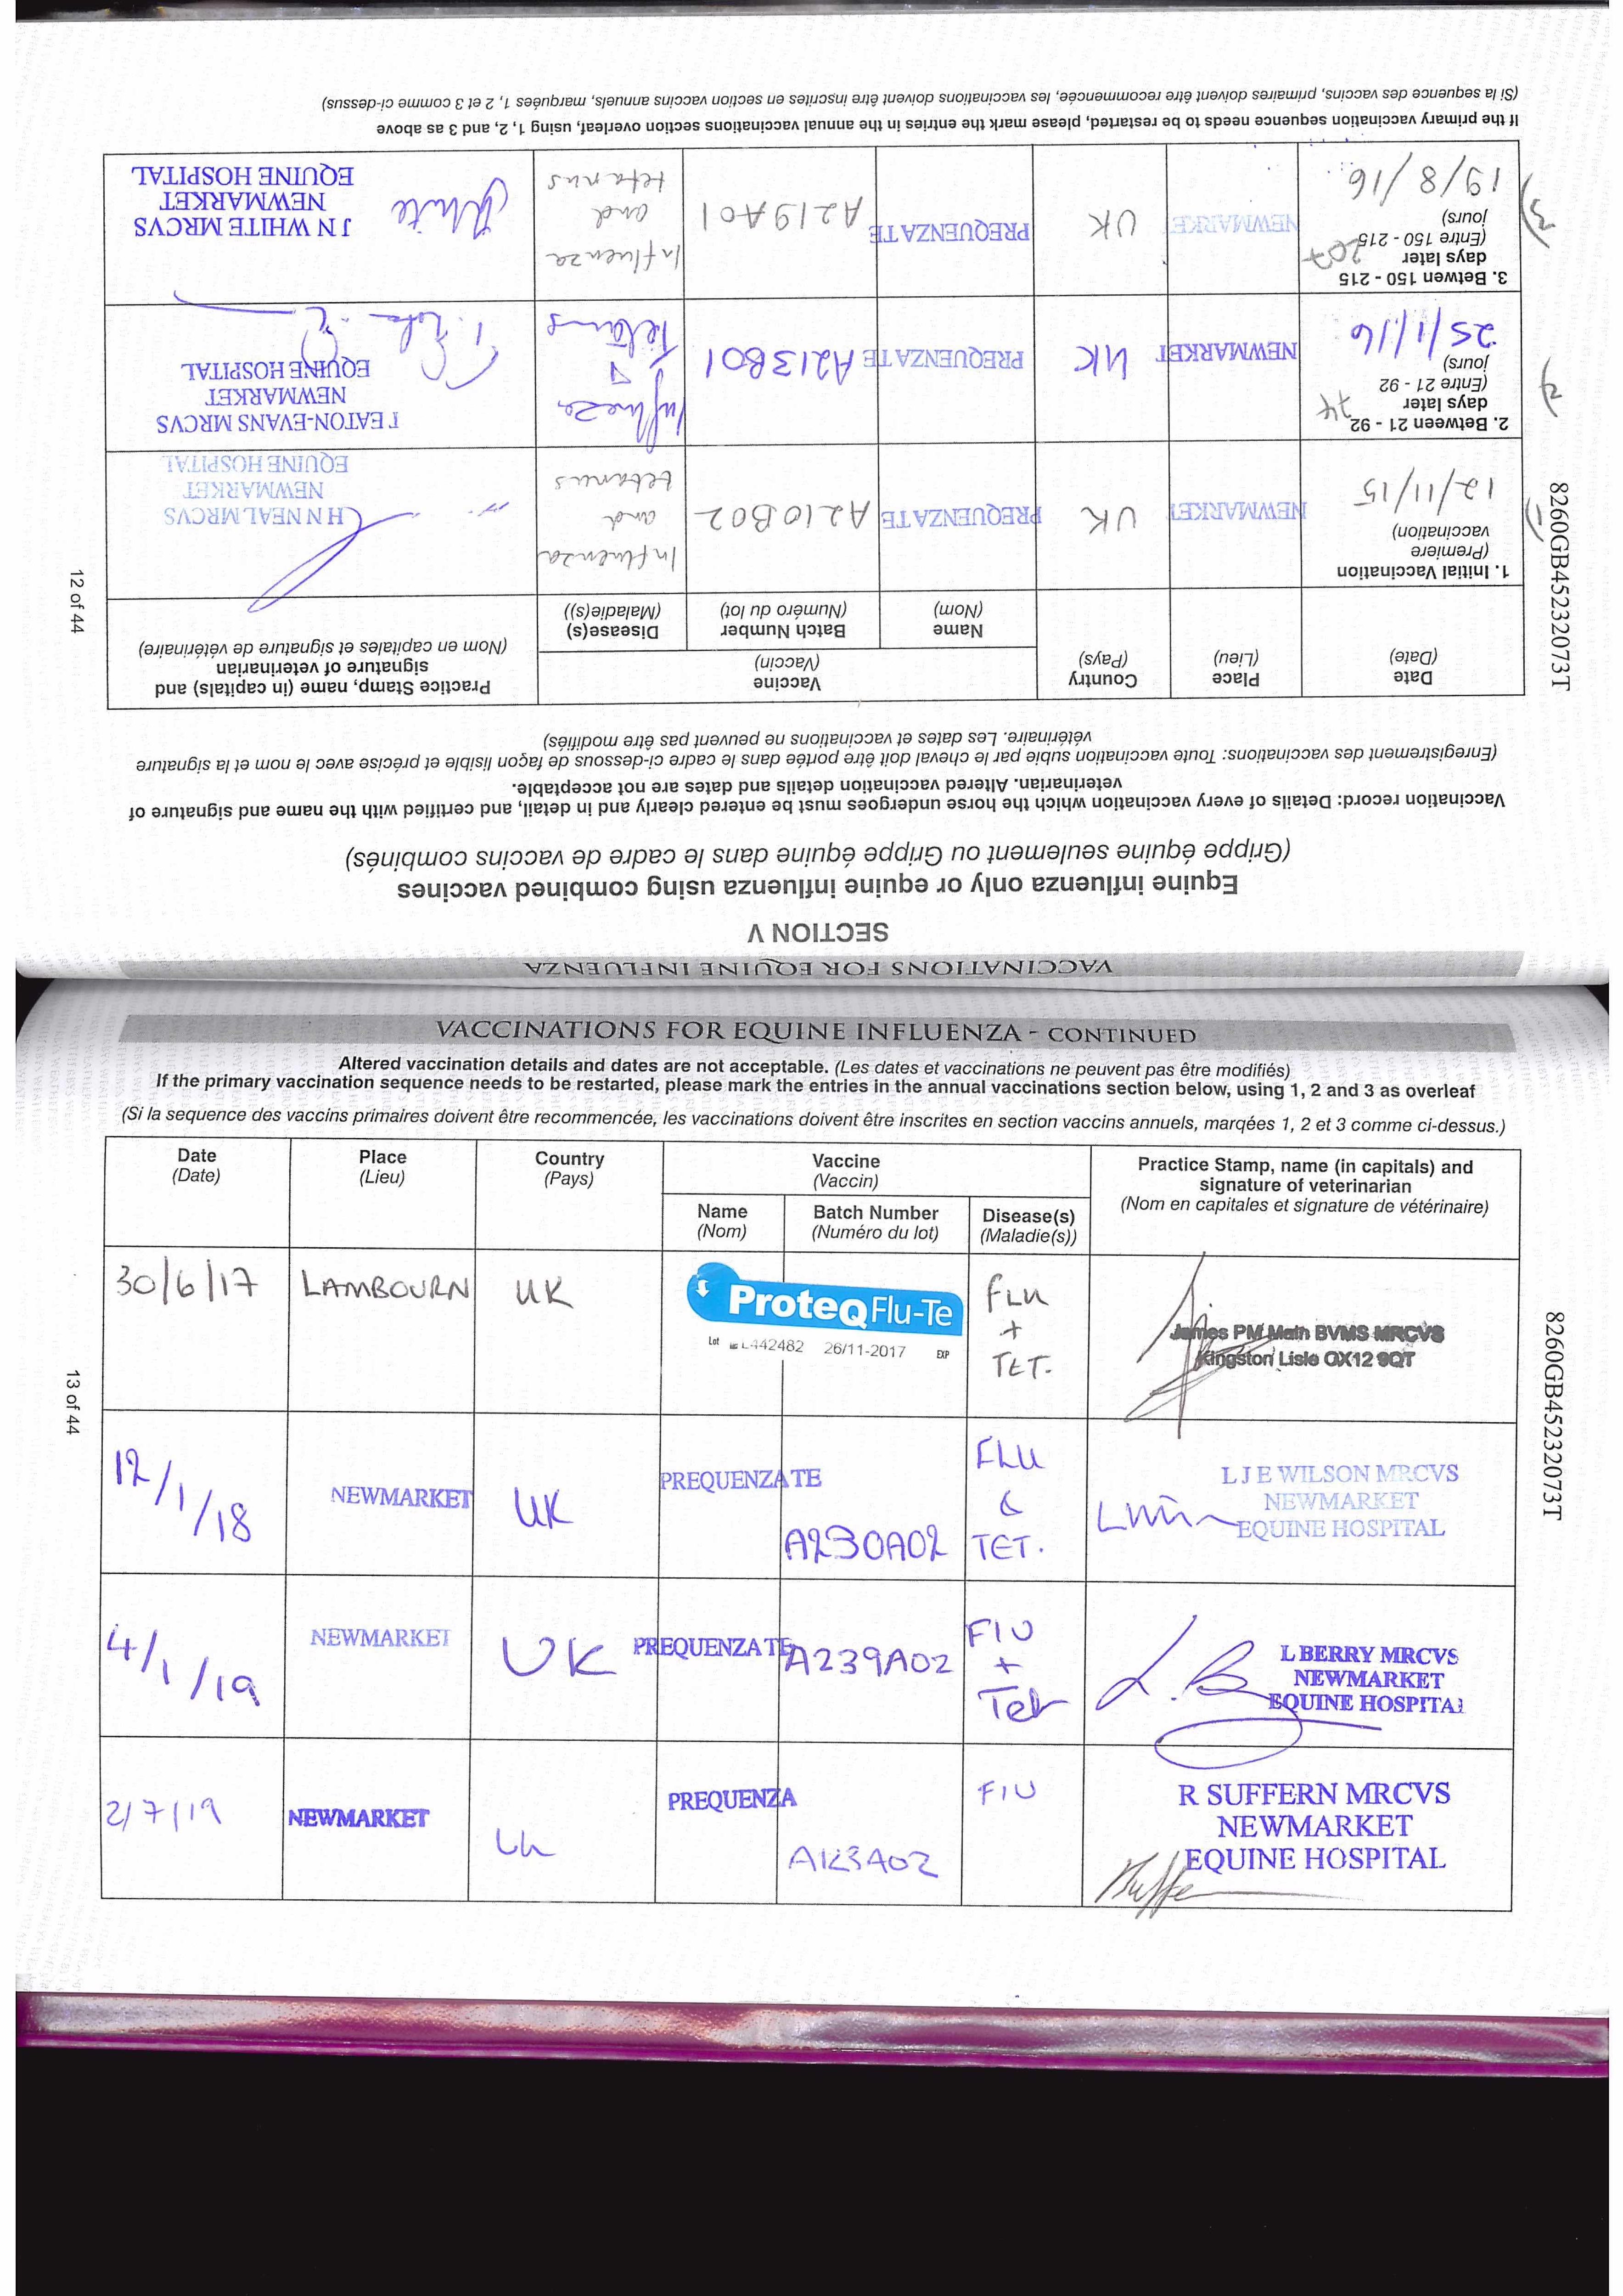 VACCINATIONS FOR EQUINE INFLUENZA
SECTION V
Equine influenza only or equine influenza using combined vaccines
(Grippe équine seulement ou Grippe équine dans le cadre de vaccins combinés)
Vaccination record: Details of every vaccination which the horse undergoes must be entered clearly and in detail, and certified with the name and signature of
veterinarian. Altered vaccination details and dates are not acceptable.
(Enregistrement des vaccinations: Toute vaccination subie par le cheval doit être portée dans le cadre ci-dessous de façon lisible et précise avec le nom et la signature
vétérinaire. Les dates et vaccinations ne peuvent pas être modifiés)
Date
(Date)
Place
(Lieu)
Country
(Pays)
Vaccine
(Vaccin)
Name
(Nom)
Batch Number
(Numéro du lot)
Disease(s)
(Maladie(s))
Practice Stamp, name (in capitals) and
signature of veterinarian
(Nom en capitales et signature de vétérinaire)
1. Initial Vaccination
(Premiere
vaccination)
12/11/15
NEWMARKET
UK
PREQUENZA TE
A210B02
Influenza
and
tetanus
C H N NEAL MRCVS
NEWMARKET
EQUINE HOSPITAL
2. Between 21 - 92
days later
(Entre 21 - 92
jours)
74
25/1/16
NEWMARKET
UK
PREQUENZA TE
A213B01
Influenza
Tetanus
T EATON-EVANS MRCVS
NEWMARKET
EQUINE HOSPITAL
3. Betwen 150 - 215
days later
(Entre 150 - 215
jours)
207
19/8/16
NEWMARKE
UK
PREQUENZA TE
A219A01
Influenza
and
tetanus
White
J N WHITE MRCVS
NEWMARKET
EQUINE HOSPITAL
If the primary vaccination sequence needs to be restarted, please mark the entries in the annual vaccinations section overleaf, using 1, 2, and 3 as above
(Si la sequence des vaccins, primaires doivent être recommencée, les vaccinations doivent être inscrites en section vaccins annuels, marquées 1, 2 et 3 comme ci-dessus)
1)
2)
3)
8260GB45232073T
12 of 44
VACCINATIONS FOR EQUINE INFLUENZA - CONTINUED
Altered vaccination details and dates are not acceptable. (Les dates et vaccinations ne peuvent pas être modifiés)
If the primary vaccination sequence needs to be restarted, please mark the entries in the annual vaccinations section below, using 1, 2 and 3 as overleaf
(Si la sequence des vaccins primaires doivent être recommencée, les vaccinations doivent être inscrites en section vaccins annuels, marqées 1, 2 et 3 comme ci-dessus.)
Date
(Date)
Place
(Lieu)
Country
(Pays)
Vaccine
(Vaccin)
Name
(Nom)
Batch Number
(Numéro du lot)
Disease(s)
(Maladie(s))
Practice Stamp, name (in capitals) and
signature of veterinarian
(Nom en capitales et signature de vétérinaire)
30/6/17
LAMBOURN
UK
ProteqFlu-Te
Lot L442482 26/11-2017 EXP
FLU
+
TET.
James PM Main BVMS MRCVS
Kingston Lisle OX12 9QT
12/1/18
NEWMARKET
UK
PREQUENZA TE
A230A02
FLU
&
TET.
L J E WILSON MRCVS
NEWMARKET
EQUINE HOSPITAL
4/1/19
NEWMARKET
UK
PREQUENZA TE
A239A02
Flu
+
Tet
L BERRY MRCVS
NEWMARKET
EQUINE HOSPITAL
2/7/19
NEWMARKET
Uk
PREQUENZA
A123A02
Flu
R SUFFERN MRCVS
NEWMARKET
EQUINE HOSPITAL
8260GB45232073T
13 of 44